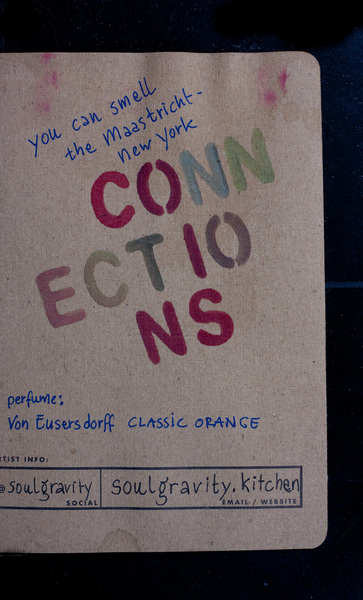 you can smell
the Maastricht-
New York
CONN
ECTIO
NS
perfume:
Von Eusersdorff CLASSIC ORANGE
TIST INFO:
@soulgravity
SOCIAL
soulgravity.kitchen
EMAIL / WEBSITE